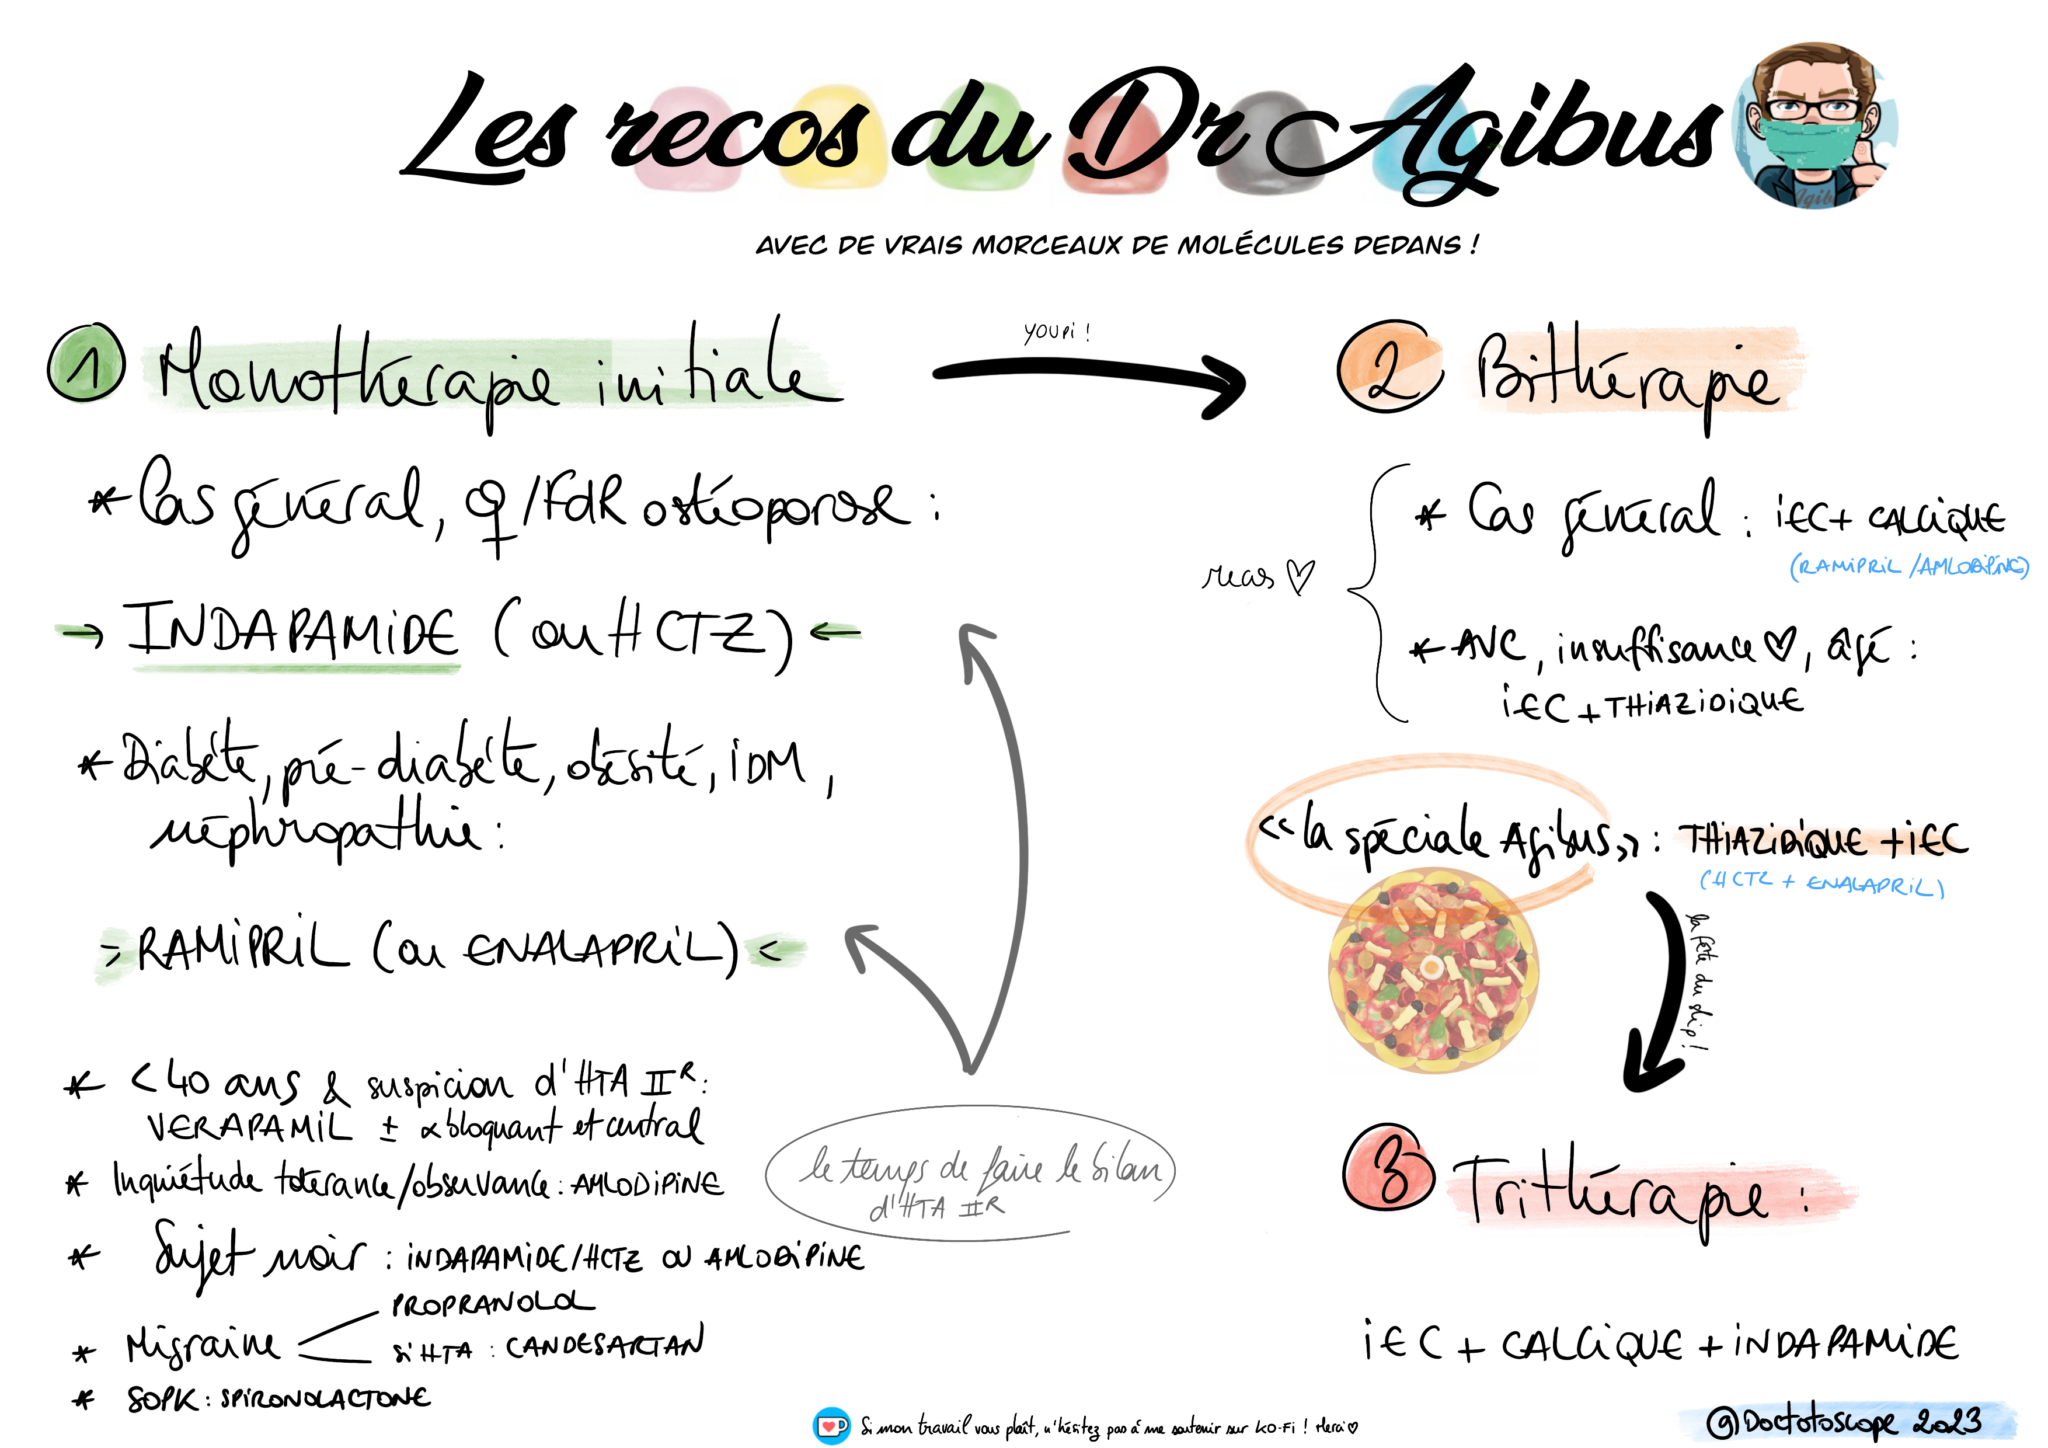 Les recos du Dr Agibus
AVEC DE VRAIS MORCEAUX DE MOLÉCULES DEDANS !
1 Monothérapie initiale
* Cas général, ♀/FdR ostéoporose :
→ INDAPAMIDE (ou HCTZ) ←
* Diabète, pré-diabète, obésité, IDM,
néphropathie :
> RAMIPRIL (ou ENALAPRIL) <
* < 40 ans & suspicion d'HTA IIR :
VERAPAMIL ± α bloquant et central
* Inquiétude tolérance/observance : AMLODIPINE
* Sujet noir : INDAPAMIDE/HCTZ OU AMLODIPINE
* Migraine
PROPRANOLOL
si HTA : CANDESARTAN
* SOPK : SPIRONOLACTONE
le temps de faire le bilan
d'HTA IIR
YOUPI !
2 Bithérapie
recos ♡
* Cas général : IEC + CALCIQUE
(RAMIPRIL/AMLODIPINE)
* AVC, insuffisance ♡, âgé :
IEC + THIAZIDIQUE
<< la spéciale Agibus >> : THIAZIDIQUE + IEC
(HCTZ + ENALAPRIL)
la fête du slip !
3 Trithérapie :
IEC + CALCIQUE + INDAPAMIDE
Si mon travail vous plaît, n'hésitez pas à me soutenir sur KO-Fi ! Merci ♡
@Doctotoscope 2023
Agibus